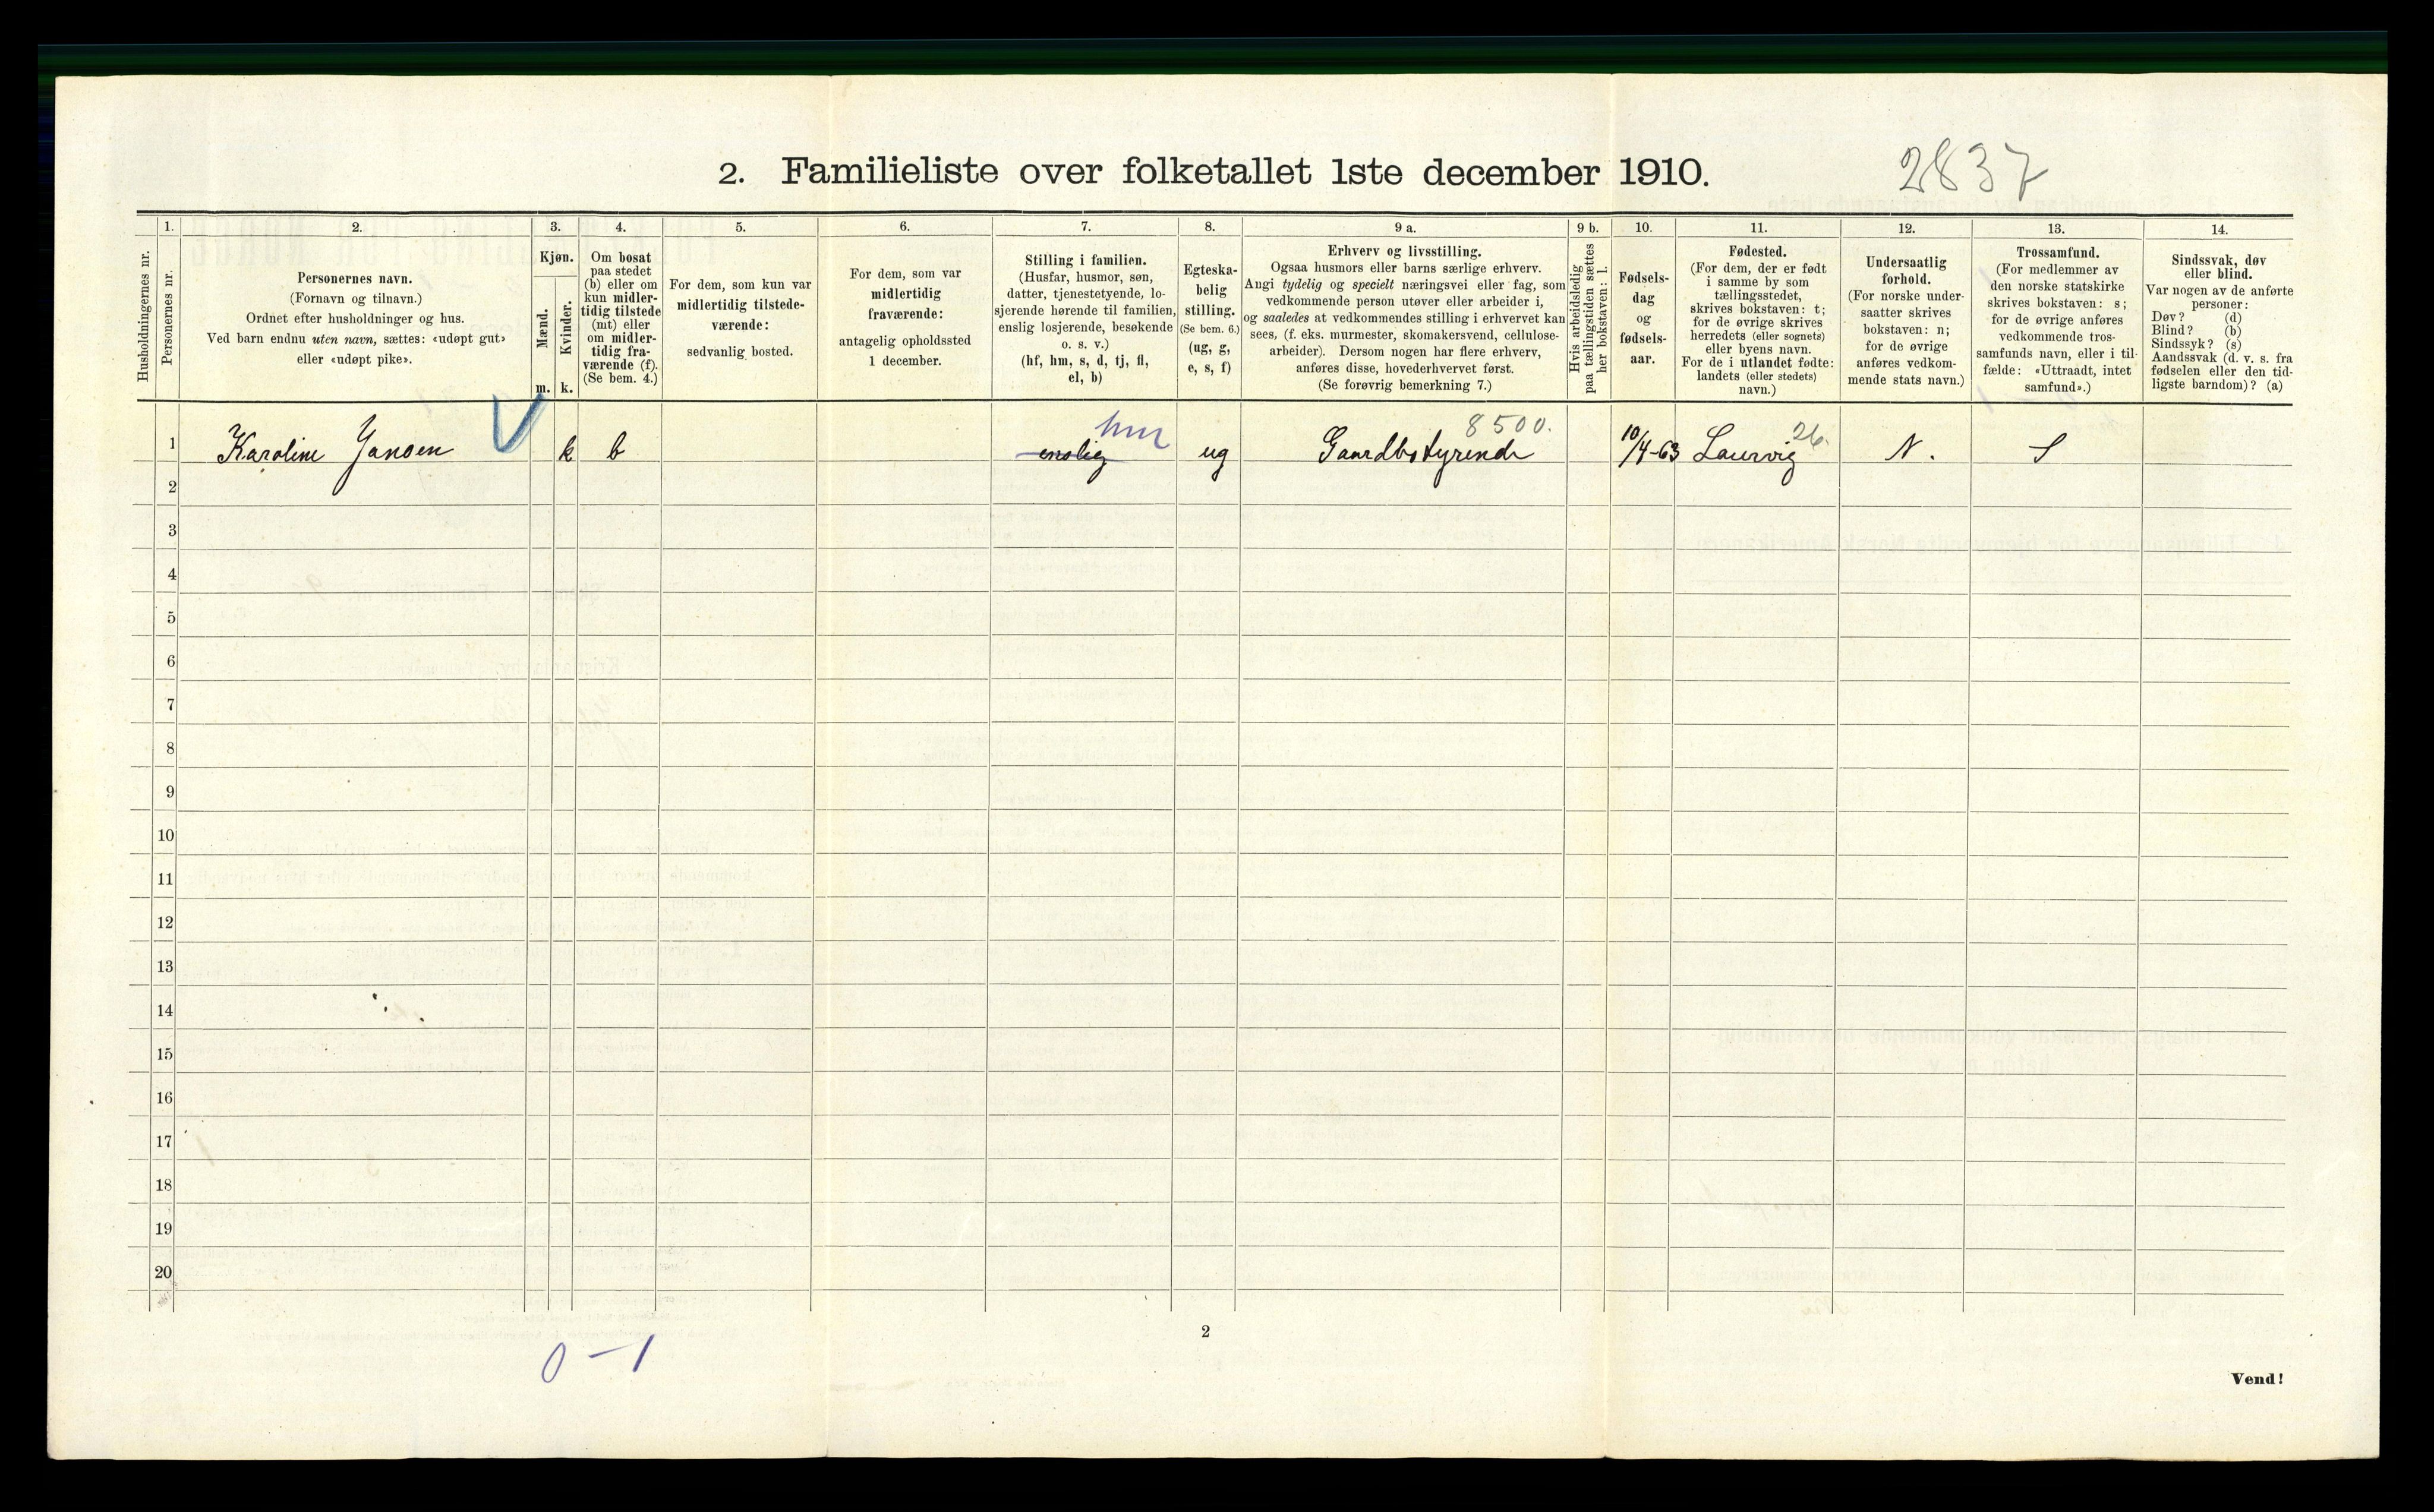 2. Familieliste over folketallet 1ste december 1910.
2837
Husholdningernes nr.
1.
Personernes nr.
2.
Personernes navn.
(Fornavn og tilnavn.)
Ordnet efter husholdninger og hus.
Ved barn endnu uten navn, sættes: «udøpt gut»
eller «udøpt pike».
3.
Kjøn.
Mænd.
Kvinder.
m. k.
4.
Om bosat
paa stedet
(b) eller om
kun midler-
tidig tilstede
(mt) eller
om midler-
tidig fra-
værende (f).
(Se bem. 4.)
5.
For dem, som kun var
midlertidig tilstede-
værende:
sedvanlig bosted.
6.
For dem, som var
midlertidig
fraværende:
antagelig opholdssted
1 december.
7.
Stilling i familien.
(Husfar, husmor, søn,
datter, tjenestetyende, lo-
sjerende hørende til familien,
enslig losjerende, besøkende
o. s. v.)
(hf, hm, s, d, tj, fl,
el, b)
8.
Egteska-
belig
stilling.
(Se bem. 6.)
(ug, g,
e, s, f)
9 a.
Erhverv og livsstilling.
Ogsaa husmors eller barns særlige erhverv.
Angi tydelig og specielt næringsvei eller fag, som
vedkommende person utøver eller arbeider i,
og saaledes at vedkommendes stilling i erhvervet kan
sees, (f. eks. murmester, skomakersvend, cellulose-
arbeider). Dersom nogen har flere erhverv,
anføres disse, hovederhvervet først.
(Se forøvrig bemerkning 7.)
9 b.
Hvis arbeidsledig
paa tællingstiden sættes
her bokstaven: l.
10.
Fødsels-
dag
og
fødsels-
aar.
11.
Fødested.
(For dem, der er født
i samme by som
tællingsstedet,
skrives bokstaven: t;
for de øvrige skrives
herredets (eller sognets)
eller byens navn.
For de i utlandet fødte:
landets (eller stedets)
navn.)
12.
Undersaatlig
forhold.
(For norske under-
saatter skrives
bokstaven: n;
for de øvrige
anføres vedkom-
mende stats navn.)
13.
Trossamfund.
(For medlemmer av
den norske statskirke
skrives bokstaven: s;
for de øvrige anføres
vedkommende tros-
samfunds navn, eller i til-
fælde: «Uttraadt, intet
samfund».)
14.
Sindssvak, døv
eller blind.
Var nogen av de anførte
personer:
Døv? (d)
Blind? (b)
Sindssyk? (s)
Aandssvak (d. v. s. fra
fødselen eller den tid-
ligste barndom)? (a)
hm 8500. 26.
1 Karoline Jansen k b enslig ug Gaardbestyrende 10/4-63 Laurvig N. S
2
3
4
5
6
7
8
9
10
11
12
13
14
15
16
17
18
19
20
0-1
2
Vend!